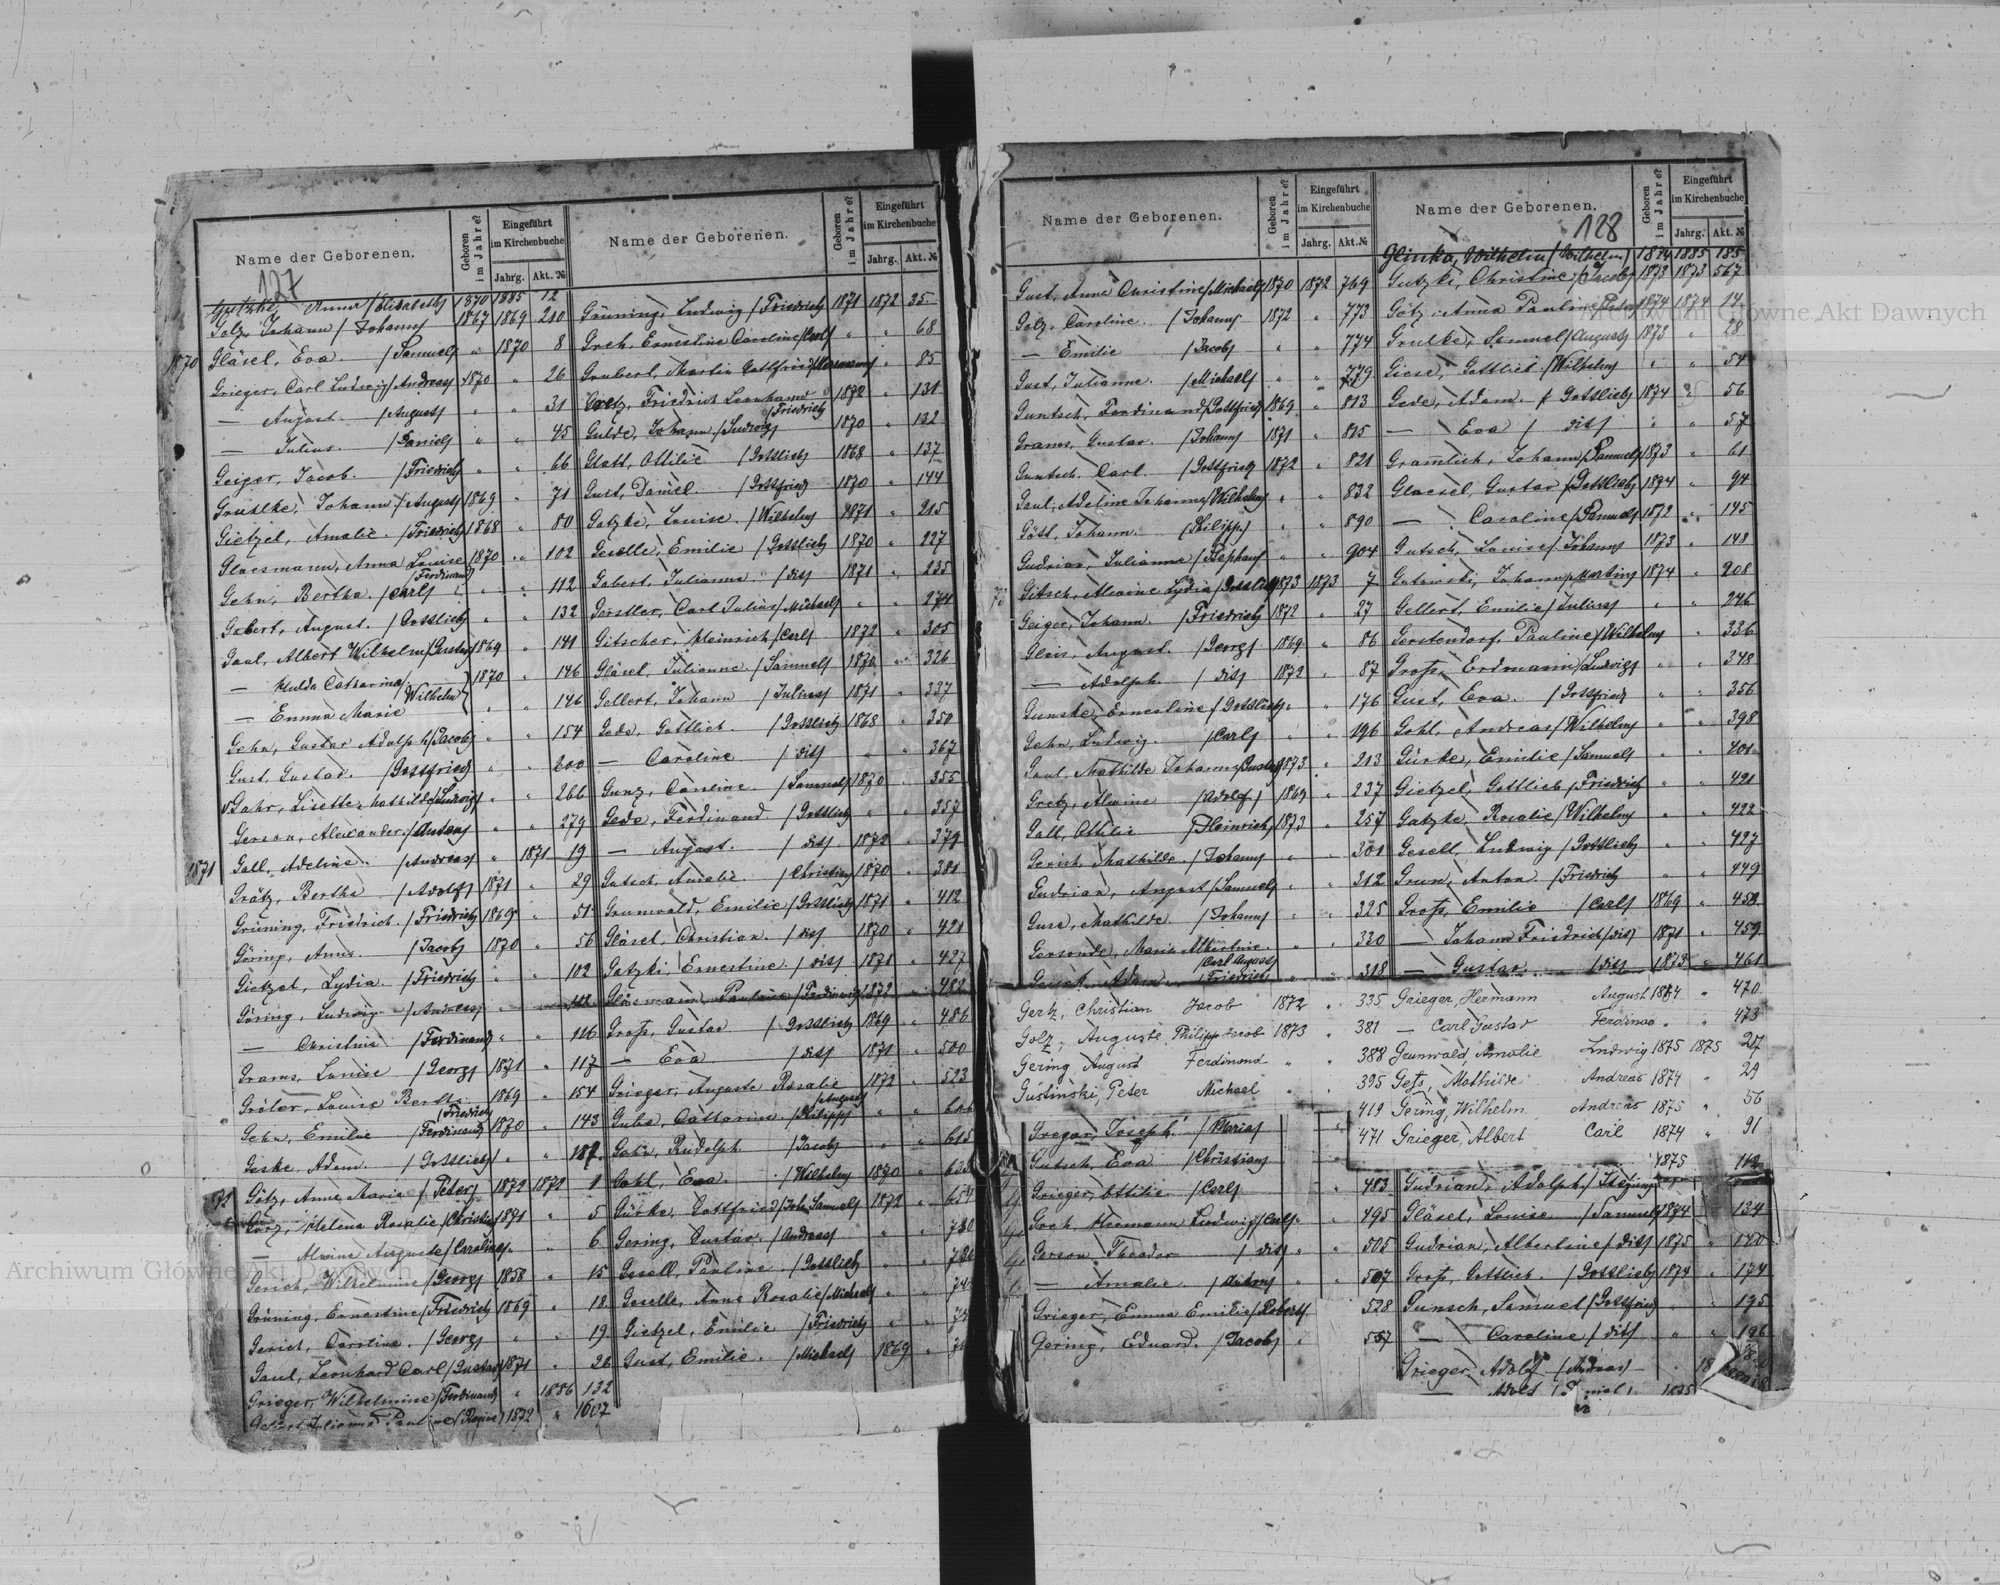 Name der Geborenen.
Geboren im Jahre?
Eingeführt im Kirchenbuche
Jahrg. Akt. №
127
Anna /Elisabeth/ 1870 1885 12
Golz, Johann /Johann/ 1867 1869 210
1870 Gläsel, Eva. /Samuel/ " 1870 8
Grieger, Carl Ludwig /Andreas/ 1870 " 26
— August /August/ " " 31
— Julius. /Daniel/ " " 45
Geiger, Jacob. /Friedrich/ " " 66
Johann /August/ 1869 " 71
Gietzel, Amalie. /Friedrich/ 1868 " 80
Glaesmann, Anna Louise /Ferdinand/ 1870 " 102
Gehn, Bertha. /Carl/ " " 112
Gabert, August. /Gottlieb/ " " 132
Gaul, Albert Wilhelm /Gustav/ 1869 " 141
— Hulda Catharina /Wilhelm/ 1870 " 146
— Emma Marie " " 146
Gehn, Gustav Adolph /Jacob/ " " 154
Gust, Gustav. /Gottfried/ " " 200
Lisette Mathilde /Ludwig/ " " 266
Gerson, Alexander. /Anton/ " " 279
1871 Gall, Adeline. /Andreas/ " 1871 19
Grätz, Bertha /Adolf/ 1871 " 29
Grüning, Friedrich. /Friedrich/ 1869 " 51
Göring, Anna. /Jacob/ 1870 " 56
Gietzel, Lydia. /Friedrich/ " " 102
Göring, Ludwig. /Andreas/ " "
— Christine. /Ferdinand/ " " 116
Grams, Louise /Georg/ 1871 " 117
Louise Bertha. /Friedrich/ 1869 " 154
Gehn, Emilie /Ferdinand/ 1870 " 143
Geske, Adam. /Gottlieb/ " " 187
Götz, Anna Marie /Peter/ 1872 1872 1
Helena Rosalie /Christine/ 1871 " 5
— Alvine Auguste /Caroline/ " " 6
Gerich, Wilhelmine /Georg/ 1858 " 15
Grüning, Ernestine /Friedrich/ 1869 " 18
Gerich, Caroline. /Georg/ " " 19
Gaul, Leonhard Carl /Gustav/ 1871 " 26
Grieger, Wilhelmine /Ferdinand/ " 1886 132
Julianna Pauline (Regine) 1872 " 1607
Name der Geborenen.
Geboren im Jahre?
Eingeführt im Kirchenbuche
Jahrg. Akt. №
Grüning, Ludwig /Friedrich/ 1871 1872 35
Greh, Ernestine Caroline /Carl/ " " 68
Grubert, Martin Gottfried /Hermann/ " " 85
Friedrich Leonhard /Friedrich/ 1872 " 131
Gulde, Johann /Ludwig/ 1870 " 132
Glatt, Ottilie /Gottlieb/ 1868 " 137
Gust, Daniel. /Gottfried/ 1870 " 144
Gatzke, Louise. /Wilhelm/ 1871 " 215
Geselle, Emilie /Gottlieb/ 1870 " 227
Gabert, Julianna. /dito/ 1871 " 235
Gerstler, Carl Julius /Michael/ " "
Gitscher, Heinrich /Carl/ 1872 " 305
Gläsel, Julianne. /Samuel/ 1870 " 326
Gellert, Johann /Julius/ 1871 " 337
Gede, Gottlieb. /Gottlieb/ 1868 " 350
— Caroline /dito/ " " 367
Genz, Caroline. /Samuel/ 1870 " 355
Gede, Ferdinand /Gottlieb/ " " 357
— August. /dito/ 1872 " 379
Gutsch, Amalie. /Christian/ 1870 " 381
Grunwald, Emilie /Gottlieb/ 1871 " 412
Gläsel, Christian. /dito/ 1870 " 421
Gatzki, Ernestine. /dito/ 1871 " 427
Pauline /Ferdinand/ 1872 "
Groß, Gustav /Gottlieb/ 1869 " 486
— Eva /dito/ 1871 " 500
Grieger, Auguste Rosalie /August/ 1872 " 523
Catharine. /Philipp/ " "
Rudolph. /Jacob/ " " 615
Gohl, Eva. /Wilhelm/ 1870 "
Gürke, Gottfried /Joh. Samuel/ 1872 "
Gering, Gustav. /Andreas/ " "
Gesell, Pauline. /Gottlieb/ " "
Geselle, Anna Rosalie /Michael/ " "
Gietzel, Emilie /Friedrich/ " "
Gust, Emilie. /Michael/ 1869 "
Name der Geborenen.
Geboren im Jahre?
Eingeführt im Kirchenbuche
Jahrg. Akt. №
Gust, Anna Christine /Michael/ 1870 1872 769
Golz, Caroline. /Johann/ 1872 " 773
— Emilie /Jacob/ " " 774
Gust, Julianne. /Michael/ " " 779
Guntsch, Ferdinand /Gottfried/ 1869 " 813
Grams, Gustav. /Johann/ 1871 " 815
Guntsch, Carl. /Gottfried/ 1872 " 821
Gaul, Adeline Johanna /Wilhelm/ " " 832
Johann. /Philipp/ " " 890
Gudrian, Julianne /Stephan/ " " 904
Gitsch, Alwine Lydia /Gottlieb/ 1873 1873 7
Geiger, Johann. /Friedrich/ 1872 " 27
August. /Georg/ 1869 " 86
— Adolph. /dito/ 1872 " 87
Gunske, Ernestine /Gottlieb/ " " 176
Gehn, Ludwig. /Carl/ " " 196
Gaul, Mathilde Johanna /Gustav/ 1873 " 213
Gretz, Alwine /Adolf/ 1869 " 237
Gall, Ottilie /Heinrich/ 1873 " 257
Gerich, Mathilde. /Johann/ " " 301
Gudrian, August /Samuel/ " " 312
Mathilde /Johann/ " " 325
Gersonde, Maria Albertine. /Carl August/ " " 330
Adam /Friedrich/ " " 318
Gertz, Christian Jacob 1872 " 335
Golz, Auguste Philipp Jacob 1873 " 381
Gering, August Ferdinand " " 388
Gustinski, Peter Michael " " 395
419
Gregor, Joseph /Maria/ 471
Gutsch, Eva /Christian/
Grieger, Ottilie. /Carl/ " 483
Groh, Hermann Ludwig /Carl/ " " 495
Gerson Theodor /dito/ " " 505
— Amalie /Anton/ " " 507
Grieger, Emma Emilie /Robert/ 528
Gering, Eduard. /Jacob/ " 557
Name der Geborenen.
Geboren im Jahre?
Eingeführt im Kirchenbuche
Jahrg. Akt. №
128
Glinka, Wilhelm /Wilhelm/ 1874 1885 185
Gutzki, Christine /Jacob/ 1873 1873 567
Götz, Anna Pauline /Peter/ 1874 1874 14
Grulke, Samuel /August/ 1873 " 28
Giese, Gottlieb. /Wilhelm/ " " 54
Gede, Adam. /Gottlieb/ 1874 " 56
— Eva /dito/ " " 57
Gramlich, Johann /Samuel/ 1873 " 61
Glaesel, Gustav /Gottlieb/ 1874 " 94
— Caroline /Samuel/ 1872 " 145
Gutsch, Louise /Johann/ 1873 " 148
Gutowski, Johann /Martin/ 1874 " 208
Gellert, Emilie /Julius/ " " 246
Gerstendorf, Pauline /Wilhelm/ " 336
Groß, Erdmann /Ludwig/ " " 348
Gust, Eva. /Gottfried/ " " 356
Gohl, Andreas /Wilhelm/ " " 398
Gürke, Emilie /Samuel/ " " 401
Gietzel, Gottlieb /Friedrich/ " " 421
Gatzke, Rosalie /Wilhelm/ " " 422
Gesell, Ludwig /Gottlieb/ " " 427
Grun, Anton. /Friedrich/ " " 449
Groß, Emilie /Carl/ 1869 " 458
— Johann Friedrich /dito/ 1871 " 459
— Gustav. /dito/ 1873 " 461
Grieger, Hermann August 1874 " 470
— Carl Gustav Ferdinand " " 473
Grunwald, Amalie Ludwig 1875 1875 27
Geß, Mathilde Andreas 1874 " 29
Gering, Wilhelm Andreas 1875 " 56
Grieger, Albert Carl 1874 " 91
Gudrian, Adolph 1875 112
Gläsel, Louise /Samuel/ 1874 134
Gudrian, Albertine /dito/ 1875 " 170
Groß, Gottlieb. /Gottlieb/ 1874 " 174
Gunsch, Samuel /Gottfried/ " " 195
— Caroline /dito/ " " 196
Grieger, Adolf (Andreas)
— Adolf
Archiwum Główne Akt Dawnych
Archiwum Główne Akt Dawnych